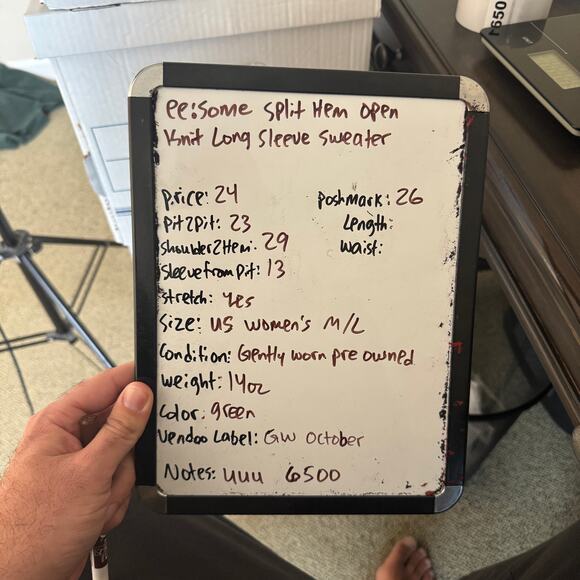 ee:some split Hem open
Knit Long Sleeve Sweater
price: 24
poshmark: 26
pit2pit: 23
Length:
shoulder2Hem: 29
waist:
sleevefrompit: 13
stretch: yes
size: US women's M/L
Condition: Gently worn pre owned
weight: 14oz
color: green
Vendoo Label: GW October
Notes: uuu 6500